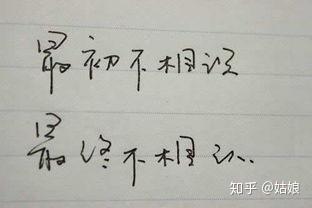 最初不相识
最终不相认
知乎 @姑娘